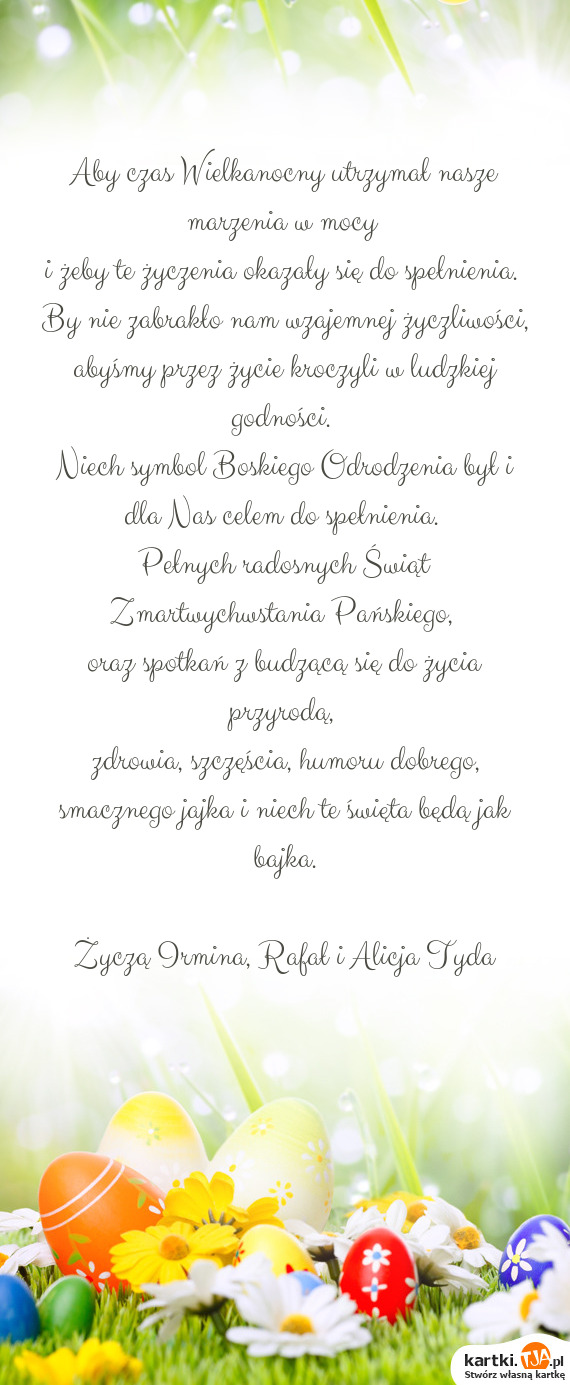 Aby czas Wielkanocny utrzymał nasze
marzenia w mocy
i żeby te życzenia okazały się do spełnienia.
By nie zabrakło nam wzajemnej życzliwości,
abyśmy przez życie kroczyli w ludzkiej
godności.
Niech symbol Boskiego Odrodzenia był i
dla Nas celem do spełnienia.
Pełnych radosnych Świąt
Zmartwychwstania Pańskiego,
oraz spotkań z budzącą się do życia
przyrodą,
zdrowia, szczęścia, humoru dobrego,
smacznego jajka i niech te święta będą jak
bajka.
Życzą Irmina, Rafał i Alicja Tyda
kartki.TJA.pl
Stwórz własną kartkę